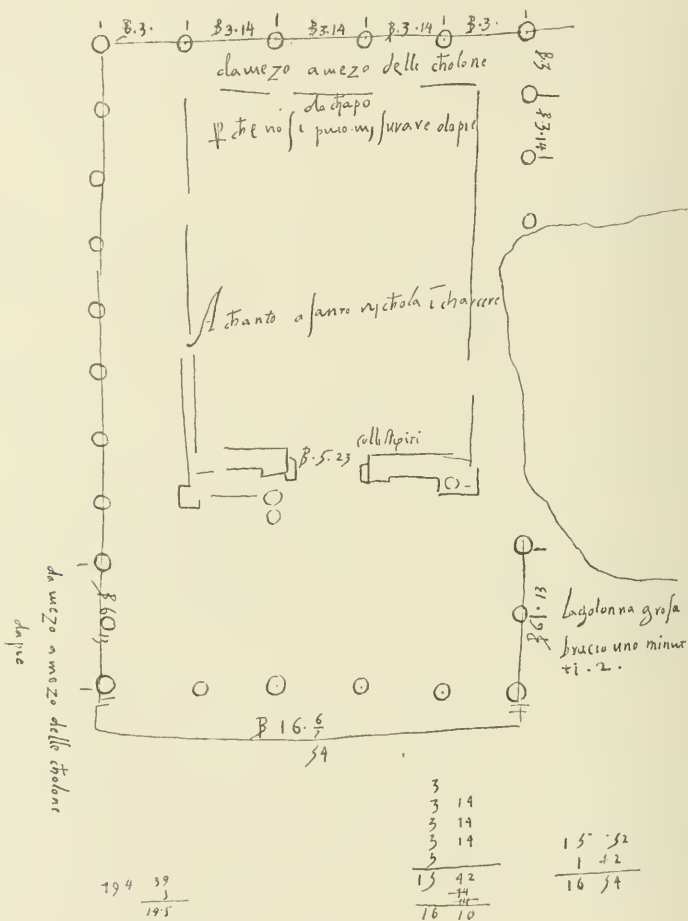 B.3. B3.14 B3.14 B.3.14 B.3.
damezo amezo delle cholone
da chapo
che no si puio misurare dapie
B.3
B3.14
A chanto a santo nichola i charcere
B.5.23
da mezo a mezo delle cholone
dapie
Lacolonna grosa
bracio uno minut
ti.2.
B 16. 6
54
3
3 14
3 14
3 14
3
15 42
16 10
15 52
1 2
16 54
194 39